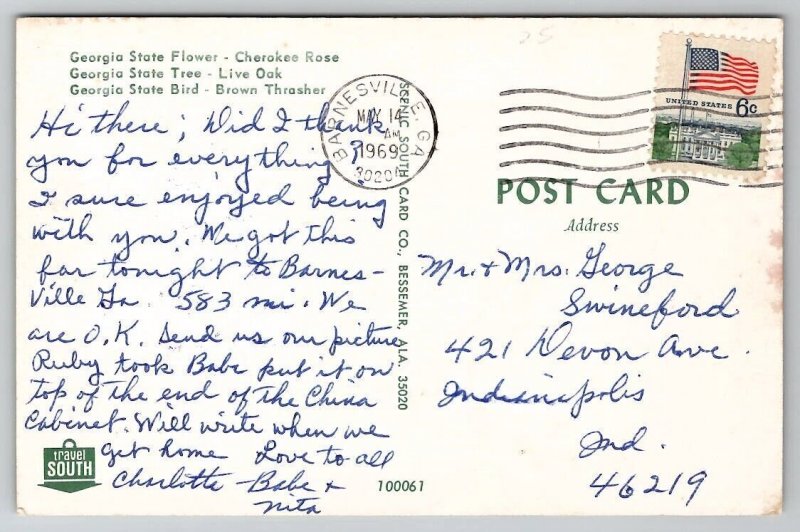 Georgia State Flower - Cherokee Rose
Georgia State Tree - Live Oak
Georgia State Bird - Brown Thrasher
Hi there; Did I thank
you for everything?!
I sure enjoyed being
with you. We got this
far tonight to Barnes-
ville Ga 583 mi. We
are O.K. Send us our picture
Ruby took Babe put it on
top of the end of the China
Cabinet. Will write when we
get home Love to all
Charlotte - Babe +
Nita
travel
SOUTH
100061
SCENIC SOUTH CARD CO., BESSEMER, ALA. 35020
BARNESVILLE, GA
MAY 14
AM
1969
UNITED STATES 6c
POST CARD
Address
Mr. + Mrs. George
Swineford
421 Devon Ave.
Indianapolis
Ind.
46219